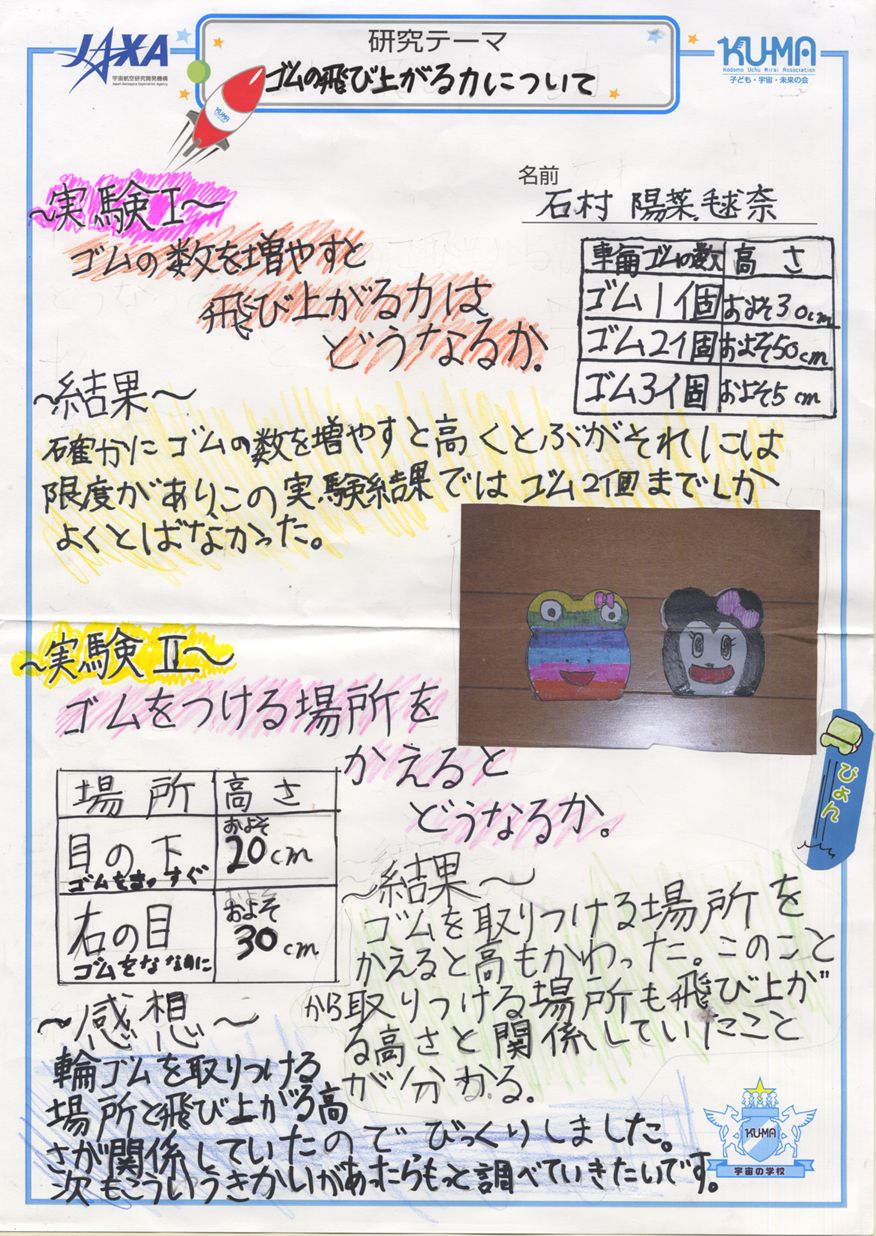 JAXA
宇宙航空研究開発機構
Japan Aerospace Exploration Agency
研究テーマ
ゴムの飛び上がる力について
KU-MA
Kodomo Uchu Mirai Association
子ども・宇宙・未来の会
KU-MA
名前
石村 陽菜毬奈
~実験I~
ゴムの数を増やすと
飛び上がる力は
どうなるか.
車輪ゴムの数 高さ
ゴム1個 およそ30cm
ゴム2個 およそ50cm
ゴム3個 およそ5cm
~結果~
確かにゴムの数を増やすと高くとぶがそれには
限度があり、この実験結果ではゴム2個までしか
よくとばなかった。
~実験II~
ゴムをつける場所を
かえると
どうなるか.
ぴょん
場所 高さ
目の下 およそ20cm
ゴムをまっすぐ
右の目 およそ30cm
ゴムをななめに
~結果~
ゴムを取りつける場所を
かえると高もかわった。このこと
から取りつける場所も飛び上が
る高さと関係していたこと
が分かる.
~感想~
輪ゴムを取りつける
場所と飛び上がる高
さが関係していたのでびっくりしました。
次もこういうきかいがあったらもっと調べていきたいです。
KU-MA
宇宙の学校